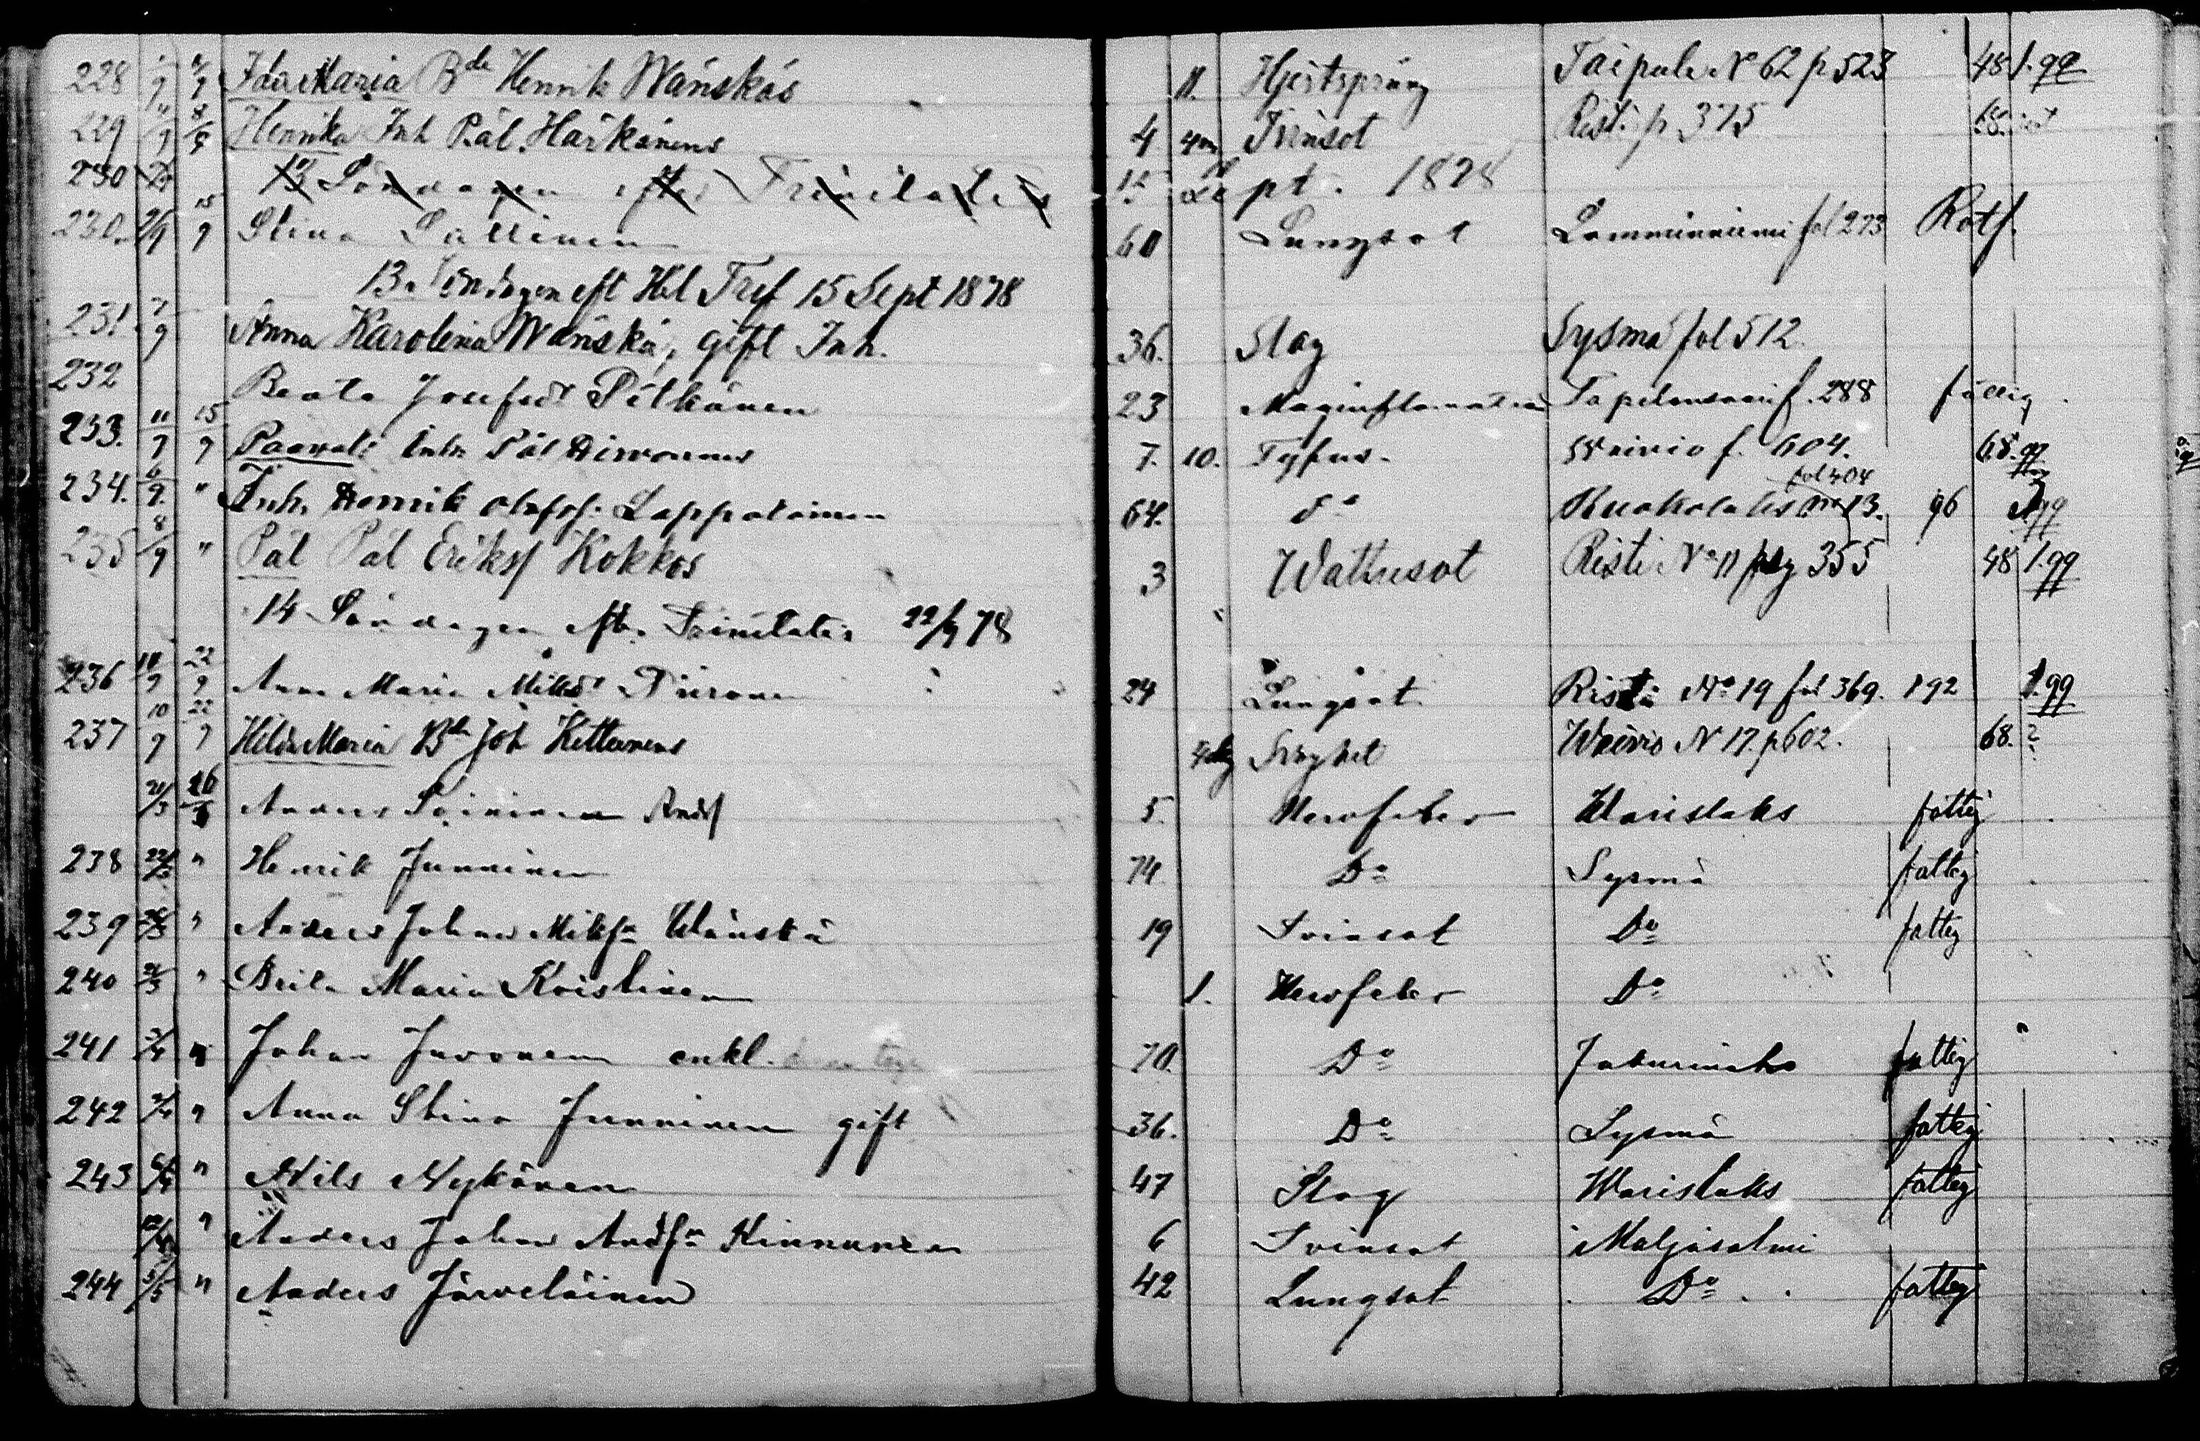 228 9 9 Ida Maria Bde Henrik Wänskäs 11. Hjertsprång Taipale No 62 p 523 48 1. qq
229 9 8/9 Henrika Inh Pål Härkönens 4 4m Tvinsot Risti p. 375
230 13 Söndagen efter Trinitatis 15 Sept. 1878
230. 9 15 9 Stina Sallinen 60 Lungsot Lamminniemi fol 273 Rotf.
13. Söndagen eft Hel Tref 15 Sept 1878
231. 7/9 Anna Karolina Wänskä, gift Inh. 36. Slag Sysmä fol 512.
232 Beata Josefsdr Pitkänen 23 Maginflamation f. 288 fattig
233. 11/9 15/9 Paavali Inh Pål Hirvonens 7. 10. Tyfus. Waivio f. 604. 68. qq
234. 6/9. " Inh. Henrik Olofss. Lappalainen 64. Do fol 404 13. 96 qq
235 8/9 " Pål Pål Erikss Kokkos 3 Wattusot Risti No 11 pag 355 48 1. qq
14 Söndagen eft. Trinitatis 22/9 78
236 10/9 22/9 Anna Maria Miksdr Piironen 24 Lungsot Risti No 19 fol 369. 192 1. qq
237 10/9 22/9 Hilda Maria Bde Joh Kettunens 4 dg Slaghet Waivio N 17. p 602. 68. 2
Anders Soininen Andsf 5. Nervfeber Warislaks fattig
238 " Henrik Junninen 74. Do Sysmä fattig
239 " Anders Johan Miksn Wänskä 19 Tvinsot Do fattig
240 " Brita Maria Koistinen 1. Nervfeber Do
241 " Johan Juvonen enkl. 70. Do fattig
242 " Anna Stina Junninen gift 36. Do Sysmä fattig
243 " Nils Nykänen 47 Slag Warislaks fattig
" Anders Johan Andsn Kinnunen 6 Tvinsot Maljasalmi
244 3/5 " Anders Järveläinen 42 Lungsot Do fattig